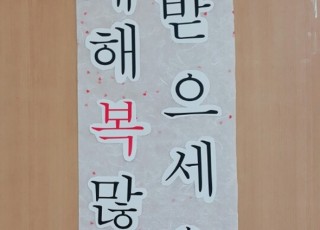 해복많
받으세